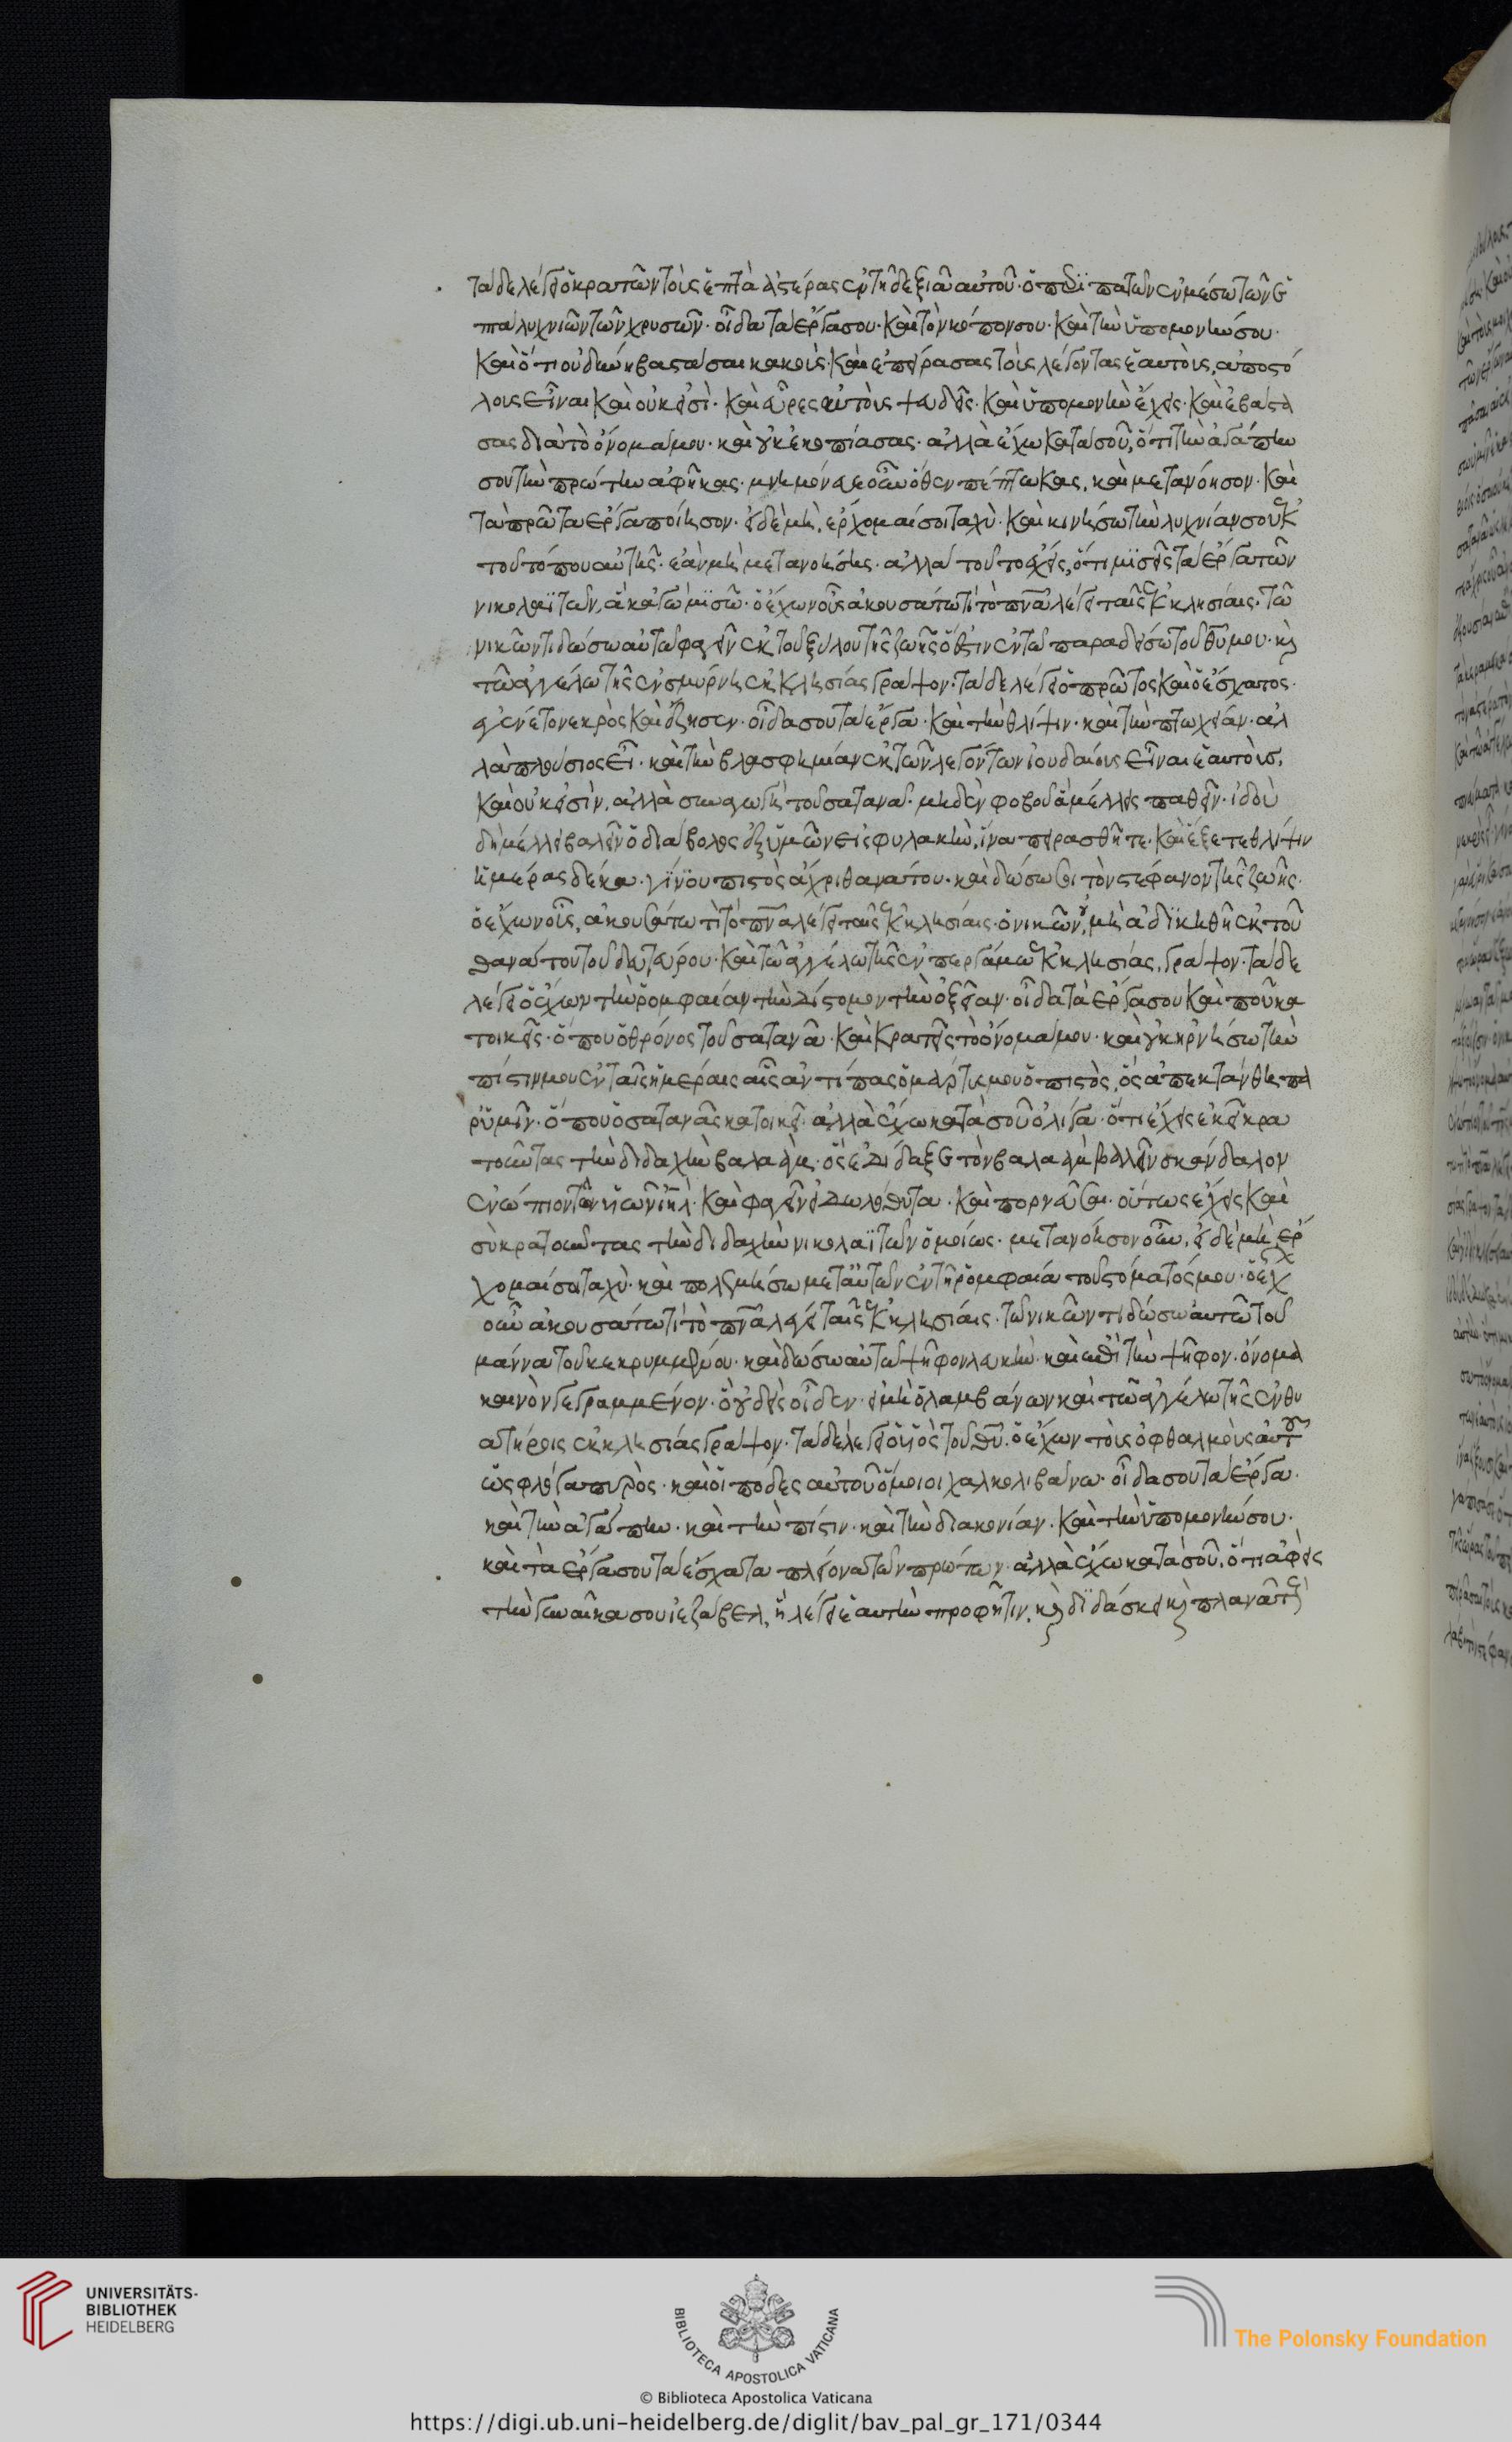 τάδε λέγει ὁ κρατῶν τοὺς ἑπτὰ ἀστέρας ἐν τῇ δεξιᾷ αὐτοῦ· ὁ περιπατῶν ἐν μέσω τῶν ἑ
πτὰ λυχνιῶν τῶν χρυσῶν· οἶδα τὰ ἔργα σου· καὶ τὸν κόπον σου· καὶ τὴν ὑπομονήν σου·
καὶ ὅτι οὐ δύνη βαστάσαι κακούς· καὶ ἐπείρασας τοὺς λέγοντας ἑαυτοὺς, ἀποστό
λους εἶναι καὶ οὐκ εἰσὶ· καὶ εὗρες αὐτοὺς ψευδεῖς· καὶ ὑπομονὴν ἔχεις· καὶ ἐβάστα
σας διὰ τὸ ὄνομά μου· καὶ οὐ κεκοπίασας· ἀλλὰ ἔχω κατὰ σοῦ, ὅτι τὴν ἀγάπην
σου τὴν πρώτην ἀφῆκας· μνημόνευε οὖν ὅθεν πέπτωκας, καὶ μετανόησον· καὶ
τὰ πρῶτα ἔργα ποίησον· εἰ δὲ μὴ, ἔρχομαί σοι ταχὺ· καὶ κινήσω τὴν λυχνίαν σου ἐκ
τοῦ τόπου αὐτῆς· ἐὰν μὴ μετανοήσης· ἀλλὰ τοῦτο ἔχεις, ὅτι μισεῖς τὰ ἔργα τῶν
νικολαϊτῶν, ἃ κἀγὼ μισῶ· ὁ ἔχων οὖς ἀκουσάτω τί τὸ πνα λέγει ταῖς ἐκκλησίαις· τῶ
νικῶντι δώσω αὐτῶ φαγεῖν ἐκ τοῦ ξύλου τῆς ζωῆς ὅ ἐστιν ἐν τῶ παραδείσω τοῦ θυ μου· κὶ
τῶ ἀγγέλω τῆς ἐν σμύρνης ἐκκλησίας γράψον· τάδε λέγει ὁ πρῶτος καὶ ὁ ἔσχατος·
ὃς ἐγένετο νεκρὸς καὶ ἔζησεν· οἶδά σου τὰ ἔργα· καὶ τὴν θλίψιν· καὶ τὴν πτωχείαν· ἀλ
λὰ πλούσιος εἶ· καὶ τὴν βλασφημίαν ἐκ τῶν λεγόντων ἰουδαίους εἶναι ἑαυτοὺς,
καὶ οὐκ εἰσὶν, ἀλλὰ συναγωγὴ τοῦ σατανᾶ· μηδὲν φοβοῦ ἃ μέλλεις παθεῖν· ἰδοὺ
δὴ μέλλει βαλεῖν ὁ διάβολος ἐξ ὑμῶν εἰς φυλακὴν, ἵνα πειρασθῆτε· καὶ ἕξετε θλίψιν
ἡμέρας δέκα· γίνου πιστὸς ἄχρι θανάτου· καὶ δώσω σοι τὸν στέφανον τῆς ζωῆς·
ὁ ἔχων οὖς, ἀκουσάτω τί τὸ πνα λέγει ταῖς ἐκκλησίαις· ὁ νικῶν, οὐ μὴ ἀδικηθῆ ἐκ τοῦ
θανάτου τοῦ δευτέρου· καὶ τῶ ἀγγέλω τῆς ἐν περγάμω ἐκκλησίας, γράψον· τάδε
λέγει ὁ ἔχων τὴν ῥομφαίαν τὴν δίστομον τὴν ὀξεῖαν· οἶδα τὰ ἔργα σου καὶ ποῦ κα
τοικεῖς· ὅπου ὁ θρόνος τοῦ σατανᾶ· καὶ κρατεῖς τὸ ὄνομά μου· καὶ οὐκ ἠρνήσω τὴν
πίστιν μου ἐν ταῖς ἡμέραις αἷς ἀντίπας ὁ μάρτυς μου ὁ πιστὸς, ὃς ἀπεκτάνθη πα
ρ' ὑμῖν· ὅπου ὁ σατανᾶς κατοικεῖ· ἀλλὰ ἔχω κατὰ σοῦ ὀλίγα· ὅτι ἔχεις ἐκεῖ κρα
τοῦντας τὴν διδαχὴν βαλαὰμ· ὃς ἐδίδαξε τὸν βαλαὰκ βαλεῖν σκάνδαλον
ἐνώπιον τῶν υἱῶν ἰηλ· καὶ φαγεῖν εἰδωλόθυτα· καὶ πορνεῦσαι· οὕτως ἔχεις καὶ
σὺ κρατοῦντας τὴν διδαχὴν νικολαϊτῶν ὁμοίως· μετανόησον οὖν, εἰ δὲ μὴ ἔρ
χομαί σοι ταχὺ· καὶ πολεμήσω μετ' αὐτῶν ἐν τῆ ῥομφαία τοῦ στόματός μου· ὁ ἔχ
οὖν ἀκουσάτω τί τὸ πνα λέγει ταῖς ἐκκλησίαις· τῶ νικῶντι δώσω αὐτῶ τοῦ
μάννα τοῦ κεκρυμμένου· καὶ δώσω αὐτῶ ψῆφον λευκὴν· καὶ ἐπὶ τὴν ψῆφον· ὄνομα
καινὸν γεγραμμένον· ὃ οὐδεὶς οἶδεν· εἰ μὴ ὁ λαμβάνων καὶ τῶ ἀγγέλω τῆς ἐν θυ
ατήροις ἐκκλησίας γράψον· τάδε λέγει ὁ υἱὸς τοῦ θυ· ὁ ἔχων τοὺς ὀφθαλμοὺς αὐτοῦ
ὡς φλόγα πυρὸς· καὶ οἱ πόδες αὐτοῦ ὅμοιοι χαλκολιβάνω· οἶδά σου τὰ ἔργα·
καὶ τὴν ἀγάπην· καὶ τὴν πίστιν· καὶ τὴν διακονίαν· καὶ τὴν ὑπομονήν σου·
καὶ τὰ ἔργα σου τὰ ἔσχατα πλείονα τῶν πρώτων· ἀλλὰ ἔχω κατὰ σοῦ, ὅτι ἀφεῖς
τὴν γυναῖκα σου ἰεζάβελ, ἣ λέγει ἑαυτὴν προφῆτιν, κὶ διδάσκει κὶ πλανᾶ τοὺς
UNIVERSITÄTS-
BIBLIOTHEK
HEIDELBERG
BIBLIOTECA APOSTOLICA VATICANA
The Polonsky Foundation
© Biblioteca Apostolica Vaticana
https://digi.ub.uni-heidelberg.de/diglit/bav_pal_gr_171/0344